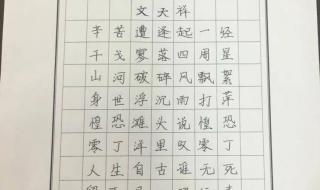 文天祥
辛苦遭逢起一经
干戈寥落四周星
山河破碎风飘絮
身世浮沉雨打萍
惶恐滩头说惶恐
零丁洋里叹零丁
人生自古谁无死